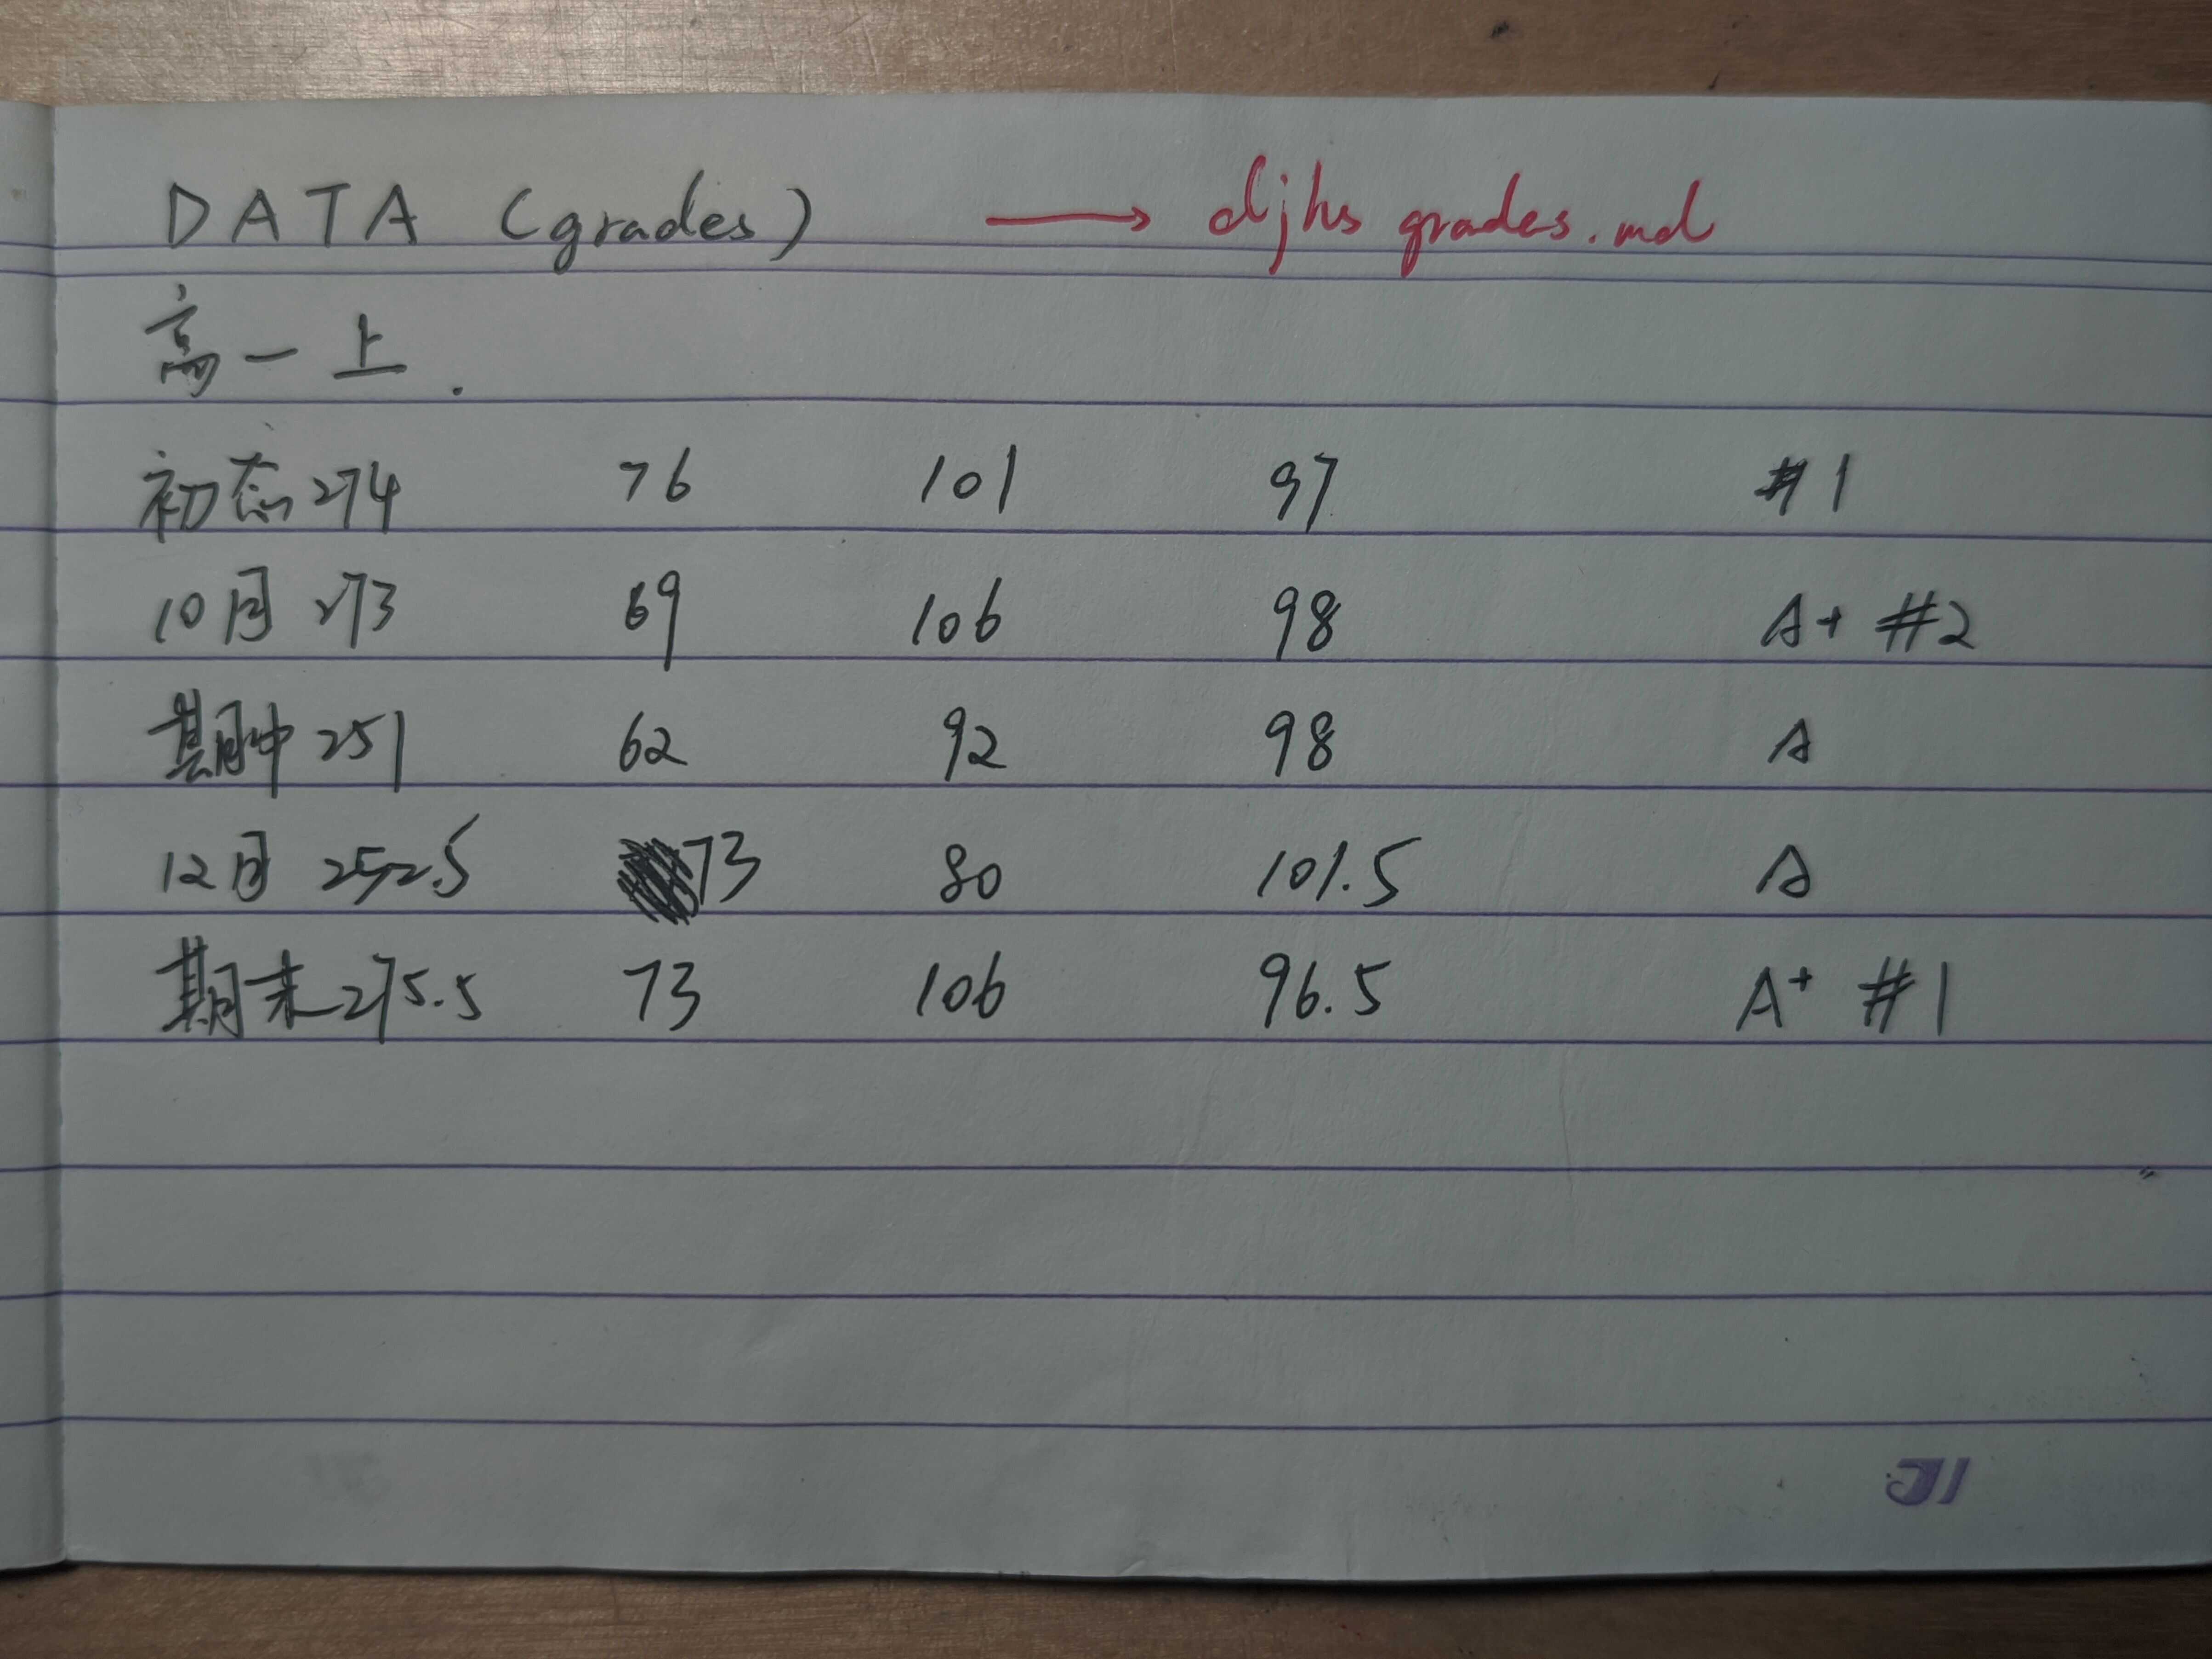 DATA (grades) → djhs grades.md
高一上.
初态274 76 101 97 #1
10月 273 69 106 98 A+ #2
期中 251 62 92 98 A
12月 252.5 73 80 101.5 A
期末275.5 73 106 96.5 A+ #1